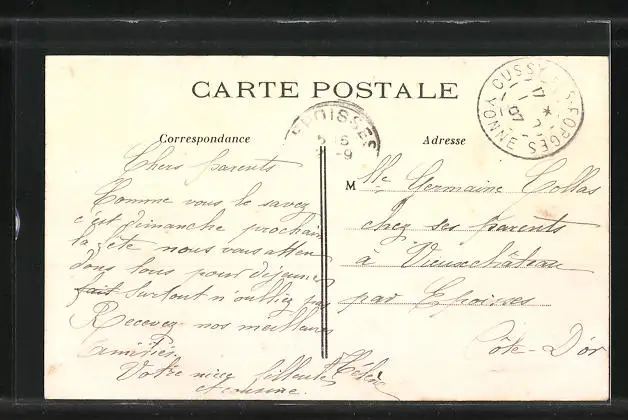 CARTE POSTALE
Correspondance
Adresse
EPOISSES
CUSSY-LES-FORGES
YONNE
Chers parents
Comme vous le savez
c'est Dimanche prochain
la fête nous vous atten
dons tous pour déjeuner
fait Surtout n'oubliez pas
Recevez nos meilleures
amitiés
Votre nièce filleule Hélène
M lle Germaine Collas
chez ses parents
à Vieuxchâteau
par Epoisses
Côte-D'or